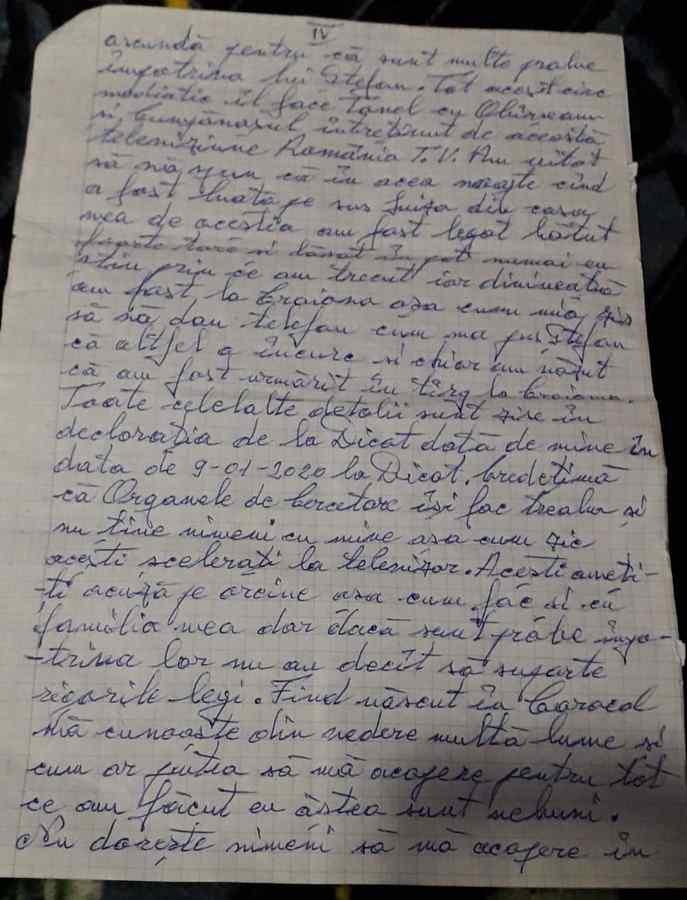 IV
ascundă pentru că sunt multe probe
împotriva lui Ștefan. Tot acest circ
mediatic îl face Tănel cu
și întreținut de această
televiziune România T.V. Am uitat
să vă spun că în acea noapte cînd
a fost luată pe sus Luiza din casa
mea de aceștia am fost legat bătut
foarte tare și lăsat în pat numai eu
știu prin ce am trecut iar dimineață
am fost la Craiova așa cum mia zis
să vă dau telefon cum ma pus Ștefan
că altfel o încurc și chiar am văzut
că am fost urmărit în tîrg la Craiova.
Toate celelalte detalii sunt zise în
declarația de la Dicot dată de mine în
data de 9-01-2020 la Dicot. Credețimă
că Organele de Cercetare își fac treaba și
nu ține nimeni cu mine așa cum zic
acești scelerați la televizor. Acești ameți-
-ți acuză pe oricine așa cum fac și cu
familia mea dar dacă sunt probe împo-
-triva lor nu au decît să suporte
rigorile legi. Find născut în Caracal
mă cunoaște din vedere multă lume și
cum ar putea să mă acopere pentru tot
ce am făcut eu ăștea sunt nebuni.
Nu dorește nimeni să mă acopere în